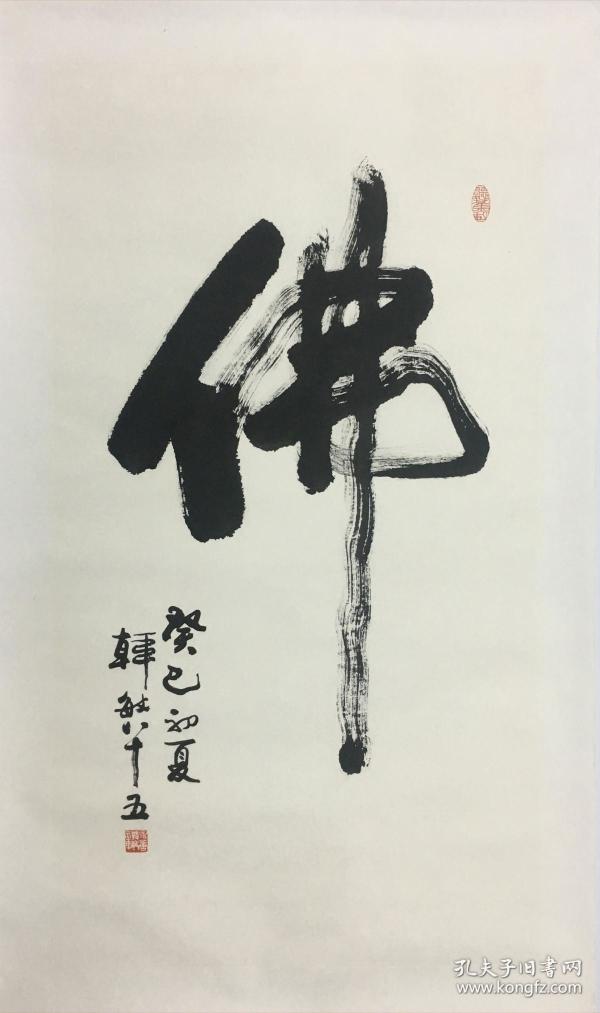 佛
癸巳初夏
韩敏八十五
孔夫子旧书网
www.kongfz.com